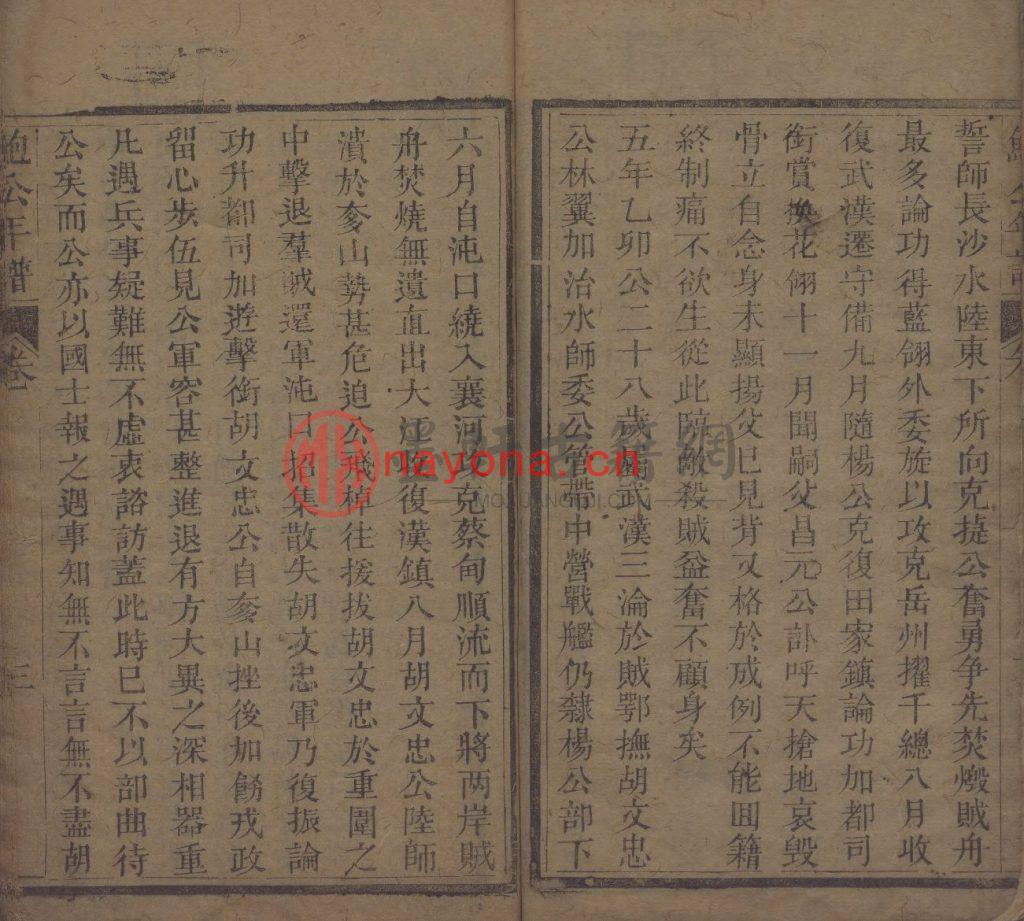 誓師長沙水陸東下所向克捷公奮勇争先焚燬賊舟
最多論功得藍翎外委旋以攻克岳州擢千總八月收
復武漢遷守備九月隨楊公克復田家鎮論功加都司
銜賞換花翎十一月聞嗣父昌元公訃呼天搶地哀毀
骨立自念身未顯揚父已見背又格於成例不能囬籍
終制痛不欲生從此臨敵殺賊益奮不顧身矣
五年乙卯公二十八歲 武漢三淪於賊鄂撫胡文忠
公林翼加治水師委公管帶中營戰艦仍隸楊公部下
六月自沌口繞入襄河攻克蔡甸順流而下將两岸賊
舟焚燒無遺直出大江收復漢鎮八月胡文忠公陸師
潰於奓山勢甚危迫公飛棹往援拔胡文忠於重圍之
中擊退羣賊還軍沌口招集散失胡文忠軍乃復振論
功升都司加遊擊銜胡文忠公自奓山挫後加餙戎政
留心步伍見公軍容甚整進退有方大異之深相器重
凡遇兵事疑難無不虛衷諮訪蓋此時已不以部曲待
公矣而公亦以國士報之遇事知無不言言無不盡胡
鮑公年譜 卷 三
墨妨古籍網
nayona.cn